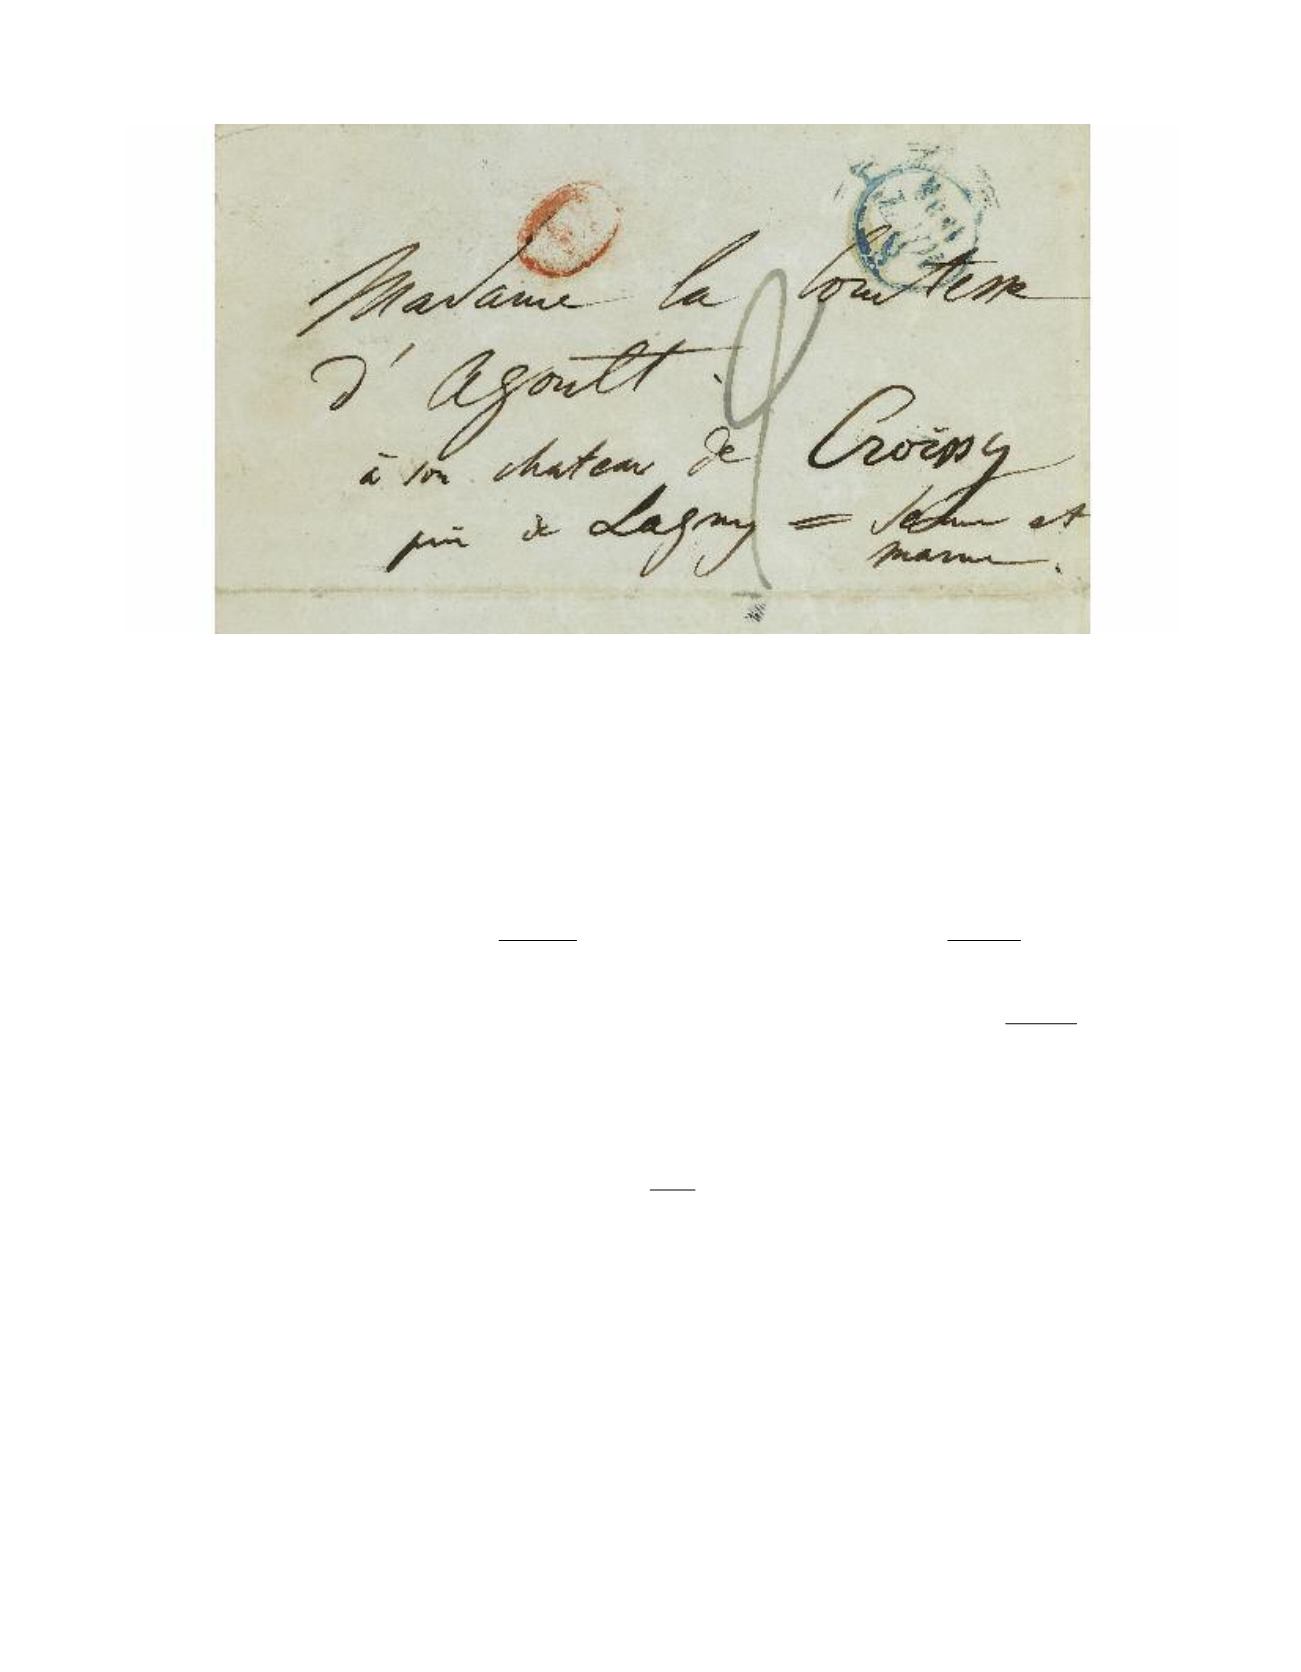 Madame la Comtesse
d'Agoult.
à son chateau de Croissy
de Lagny = Seine et
marne.